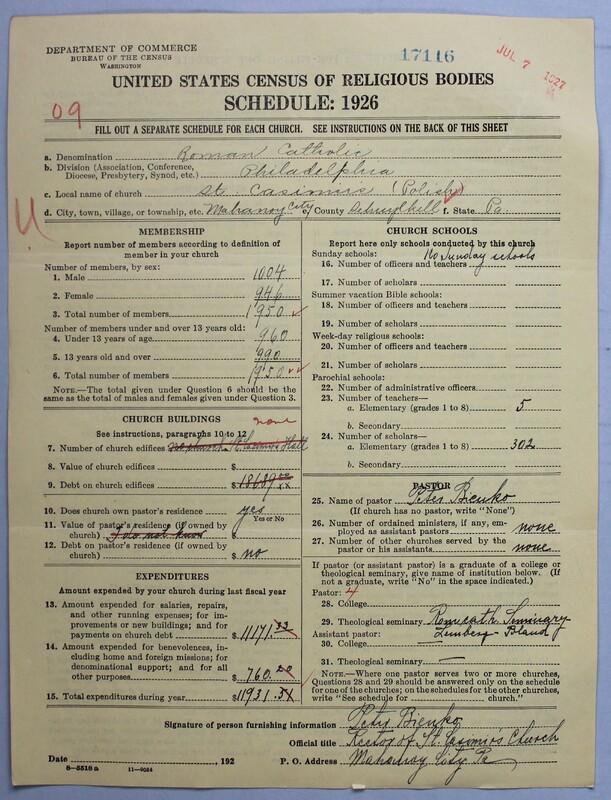 DEPARTMENT OF COMMERCE
BUREAU OF THE CENSUS
WASHINGTON
17116
JUL 7 1927
UNITED STATES CENSUS OF RELIGIOUS BODIES
SCHEDULE: 1926
09
FILL OUT A SEPARATE SCHEDULE FOR EACH CHURCH. SEE INSTRUCTIONS ON THE BACK OF THIS SHEET
a. Denomination Roman Catholic
b. Division (Association, Conference, Diocese, Presbytery, Synod, etc.) Philadelphia
c. Local name of church St. Casimirs (Polish)
d. City, town, village, or township, etc. Mahanoy City e. County Schuylkill f. State Pa.
MEMBERSHIP
Report number of members according to definition of
member in your church
Number of members, by sex:
1. Male 1004
2. Female 946
3. Total number of members 1950
Number of members under and over 13 years old:
4. Under 13 years of age 960
5. 13 years old and over 990
6. Total number of members 1950
NOTE.—The total given under Question 6 should be the
same as the total of males and females given under Question 3.
CHURCH BUILDINGS none
See instructions, paragraphs 10 to 12
7. Number of church edifices no church St. Casimirs Hall
8. Value of church edifices $
9. Debt on church edifices $ 18639
10. Does church own pastor's residence? yes
Yes or No
11. Value of pastor's residence (if owned by
church) I do not know $
12. Debt on pastor's residence (if owned by
church) $ no
EXPENDITURES
Amount expended by your church during last fiscal year
13. Amount expended for salaries, repairs,
and other running expenses; for im-
provements or new buildings; and for
payments on church debt $ 11171.33
14. Amount expended for benevolences,
including home and foreign missions; for
denominational support; and for all
other purposes $ 760.20
15. Total expenditures during year $ 11931.51
CHURCH SCHOOLS
Report here only schools conducted by this church
Sunday schools: No Sunday schools
16. Number of officers and teachers
17. Number of scholars
Summer vacation Bible schools:
18. Number of officers and teachers
19. Number of scholars
Week-day religious schools:
20. Number of officers and teachers
21. Number of scholars
Parochial schools:
22. Number of administrative officers
23. Number of teachers—
a. Elementary (grades 1 to 8) 5
b. Secondary
24. Number of scholars—
a. Elementary (grades 1 to 8) 302
b. Secondary
PASTOR
25. Name of pastor Peter Bienko
(If church has no pastor, write "None")
26. Number of ordained ministers, if any, em-
ployed as assistant pastors none
27. Number of other churches served by the
pastor or his assistants none
If pastor (or assistant pastor) is a graduate of a college or
theological seminary, give name of institution below. (If
not a graduate, write "No" in the space indicated.)
Pastor: 4
28. College
29. Theological seminary Rom cath Seminary
Assistant pastor: Lemberg
30. College
31. Theological seminary —
NOTE.—Where one pastor serves two or more churches,
Questions 28 and 29 should be answered only on the schedule
for one of the churches; on the schedules for the other churches,
write "See schedule for church."
Signature of person furnishing information Peter Bienko
Official title Rector of St. Casimir's Church
Date , 192 P. O. Address Mahanoy City Pa
8—5518a 11—9034